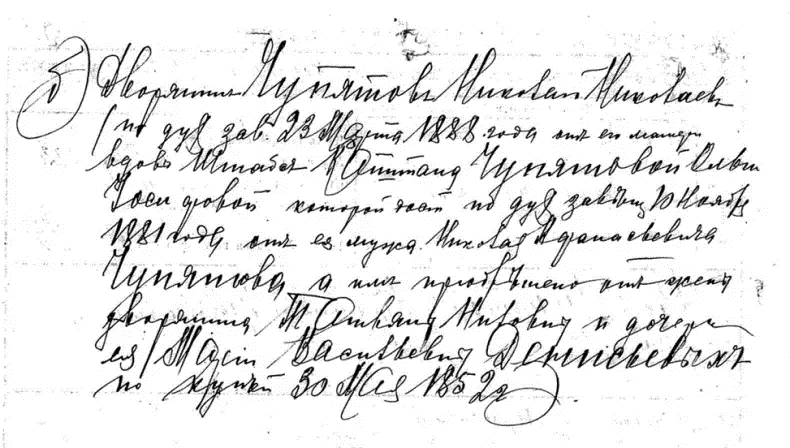 б) Дворянинъ Чупятовъ Николай Николаевъ
(по дух зав. 23 Марта 1888 года отъ его матери
вдовы Штабсъ Капитана Чупятовой Ольги
Іосифовой которой дост по дух завѣщ 10 Ноября
1881 года отъ ея мужа Николая Афанасьевича
Чупятова, а имъ пріобрѣтено отъ жены
дворянина Татьяны и дочери
ея Васильевны Денисьевыхъ
по купчей 30 Мая 1852 г